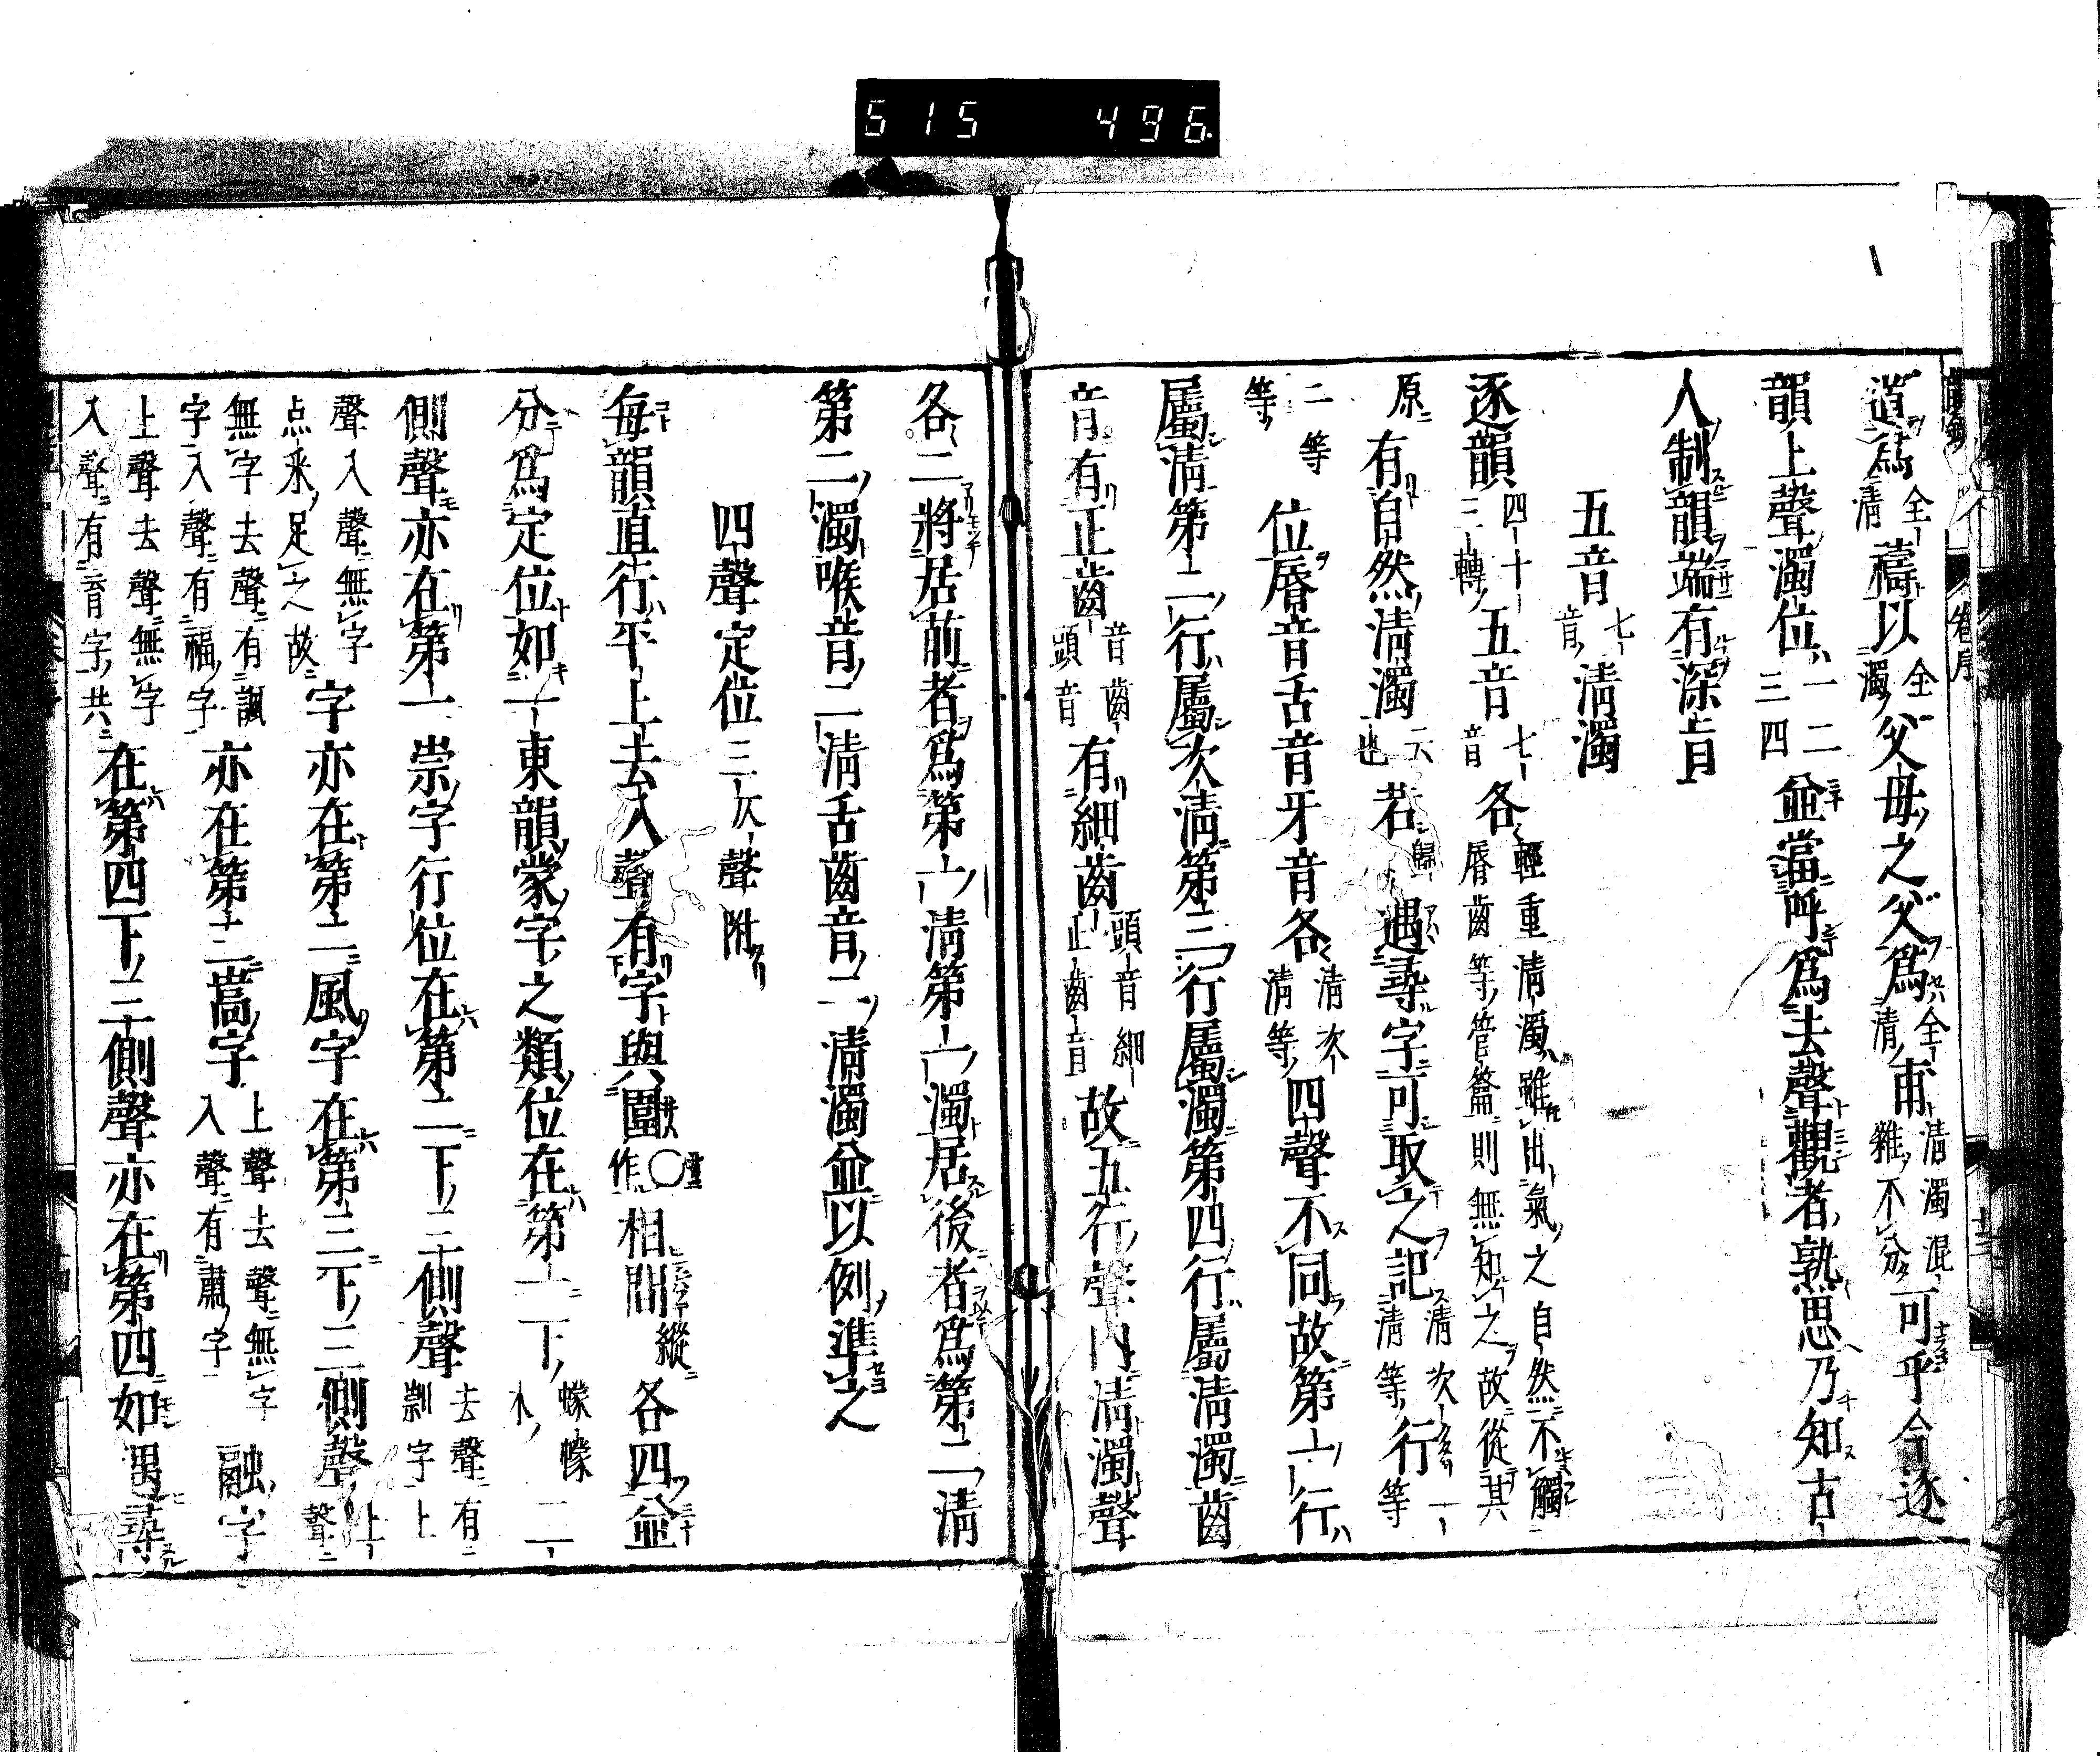 515 496.
道爲全清禱以全濁父母之父爲全清甫清濁混雜不分可乎今逐
韻上聲濁位一二三四並當呼爲去聲觀者熟思乃知古
人制韻端有深旨
五音七音清濁
逐韻四十三轉五音七音各輕重清濁雖出氣之自然不觸唇齒等管籥則無知之故從其
原有自然清濁云也若歸遇尋字可取之記清次清等行一等
二等等位唇音舌音牙音各清次清等四聲不同故第一行
屬清第二行屬次清第三行屬濁第四行屬清濁齒
音有正齒音齒頭音有細齒頭音細正齒音故五行聲内清濁聲
各二將居前者爲第一清第一濁居後者爲第二清
第二濁喉音二清舌齒音二清濁並以例準之
四聲定位三仄聲附
每韻直行平上去入聲有字與圍○作相間縱各四並
分爲定位如一東韻蒙字之類位在第一下蠓幪木二
側聲亦在第一崇字行位在第二下三側聲去聲有剬字上
聲入聲無字点乑足之故字亦在第二風字在第三下三側聲上聲
無字去聲有諷字入聲有福字亦在第三嵩字上聲去聲無字入聲有肅字融字
上聲去聲無字入聲有育字共在第四下三側聲亦在第四如遇尋